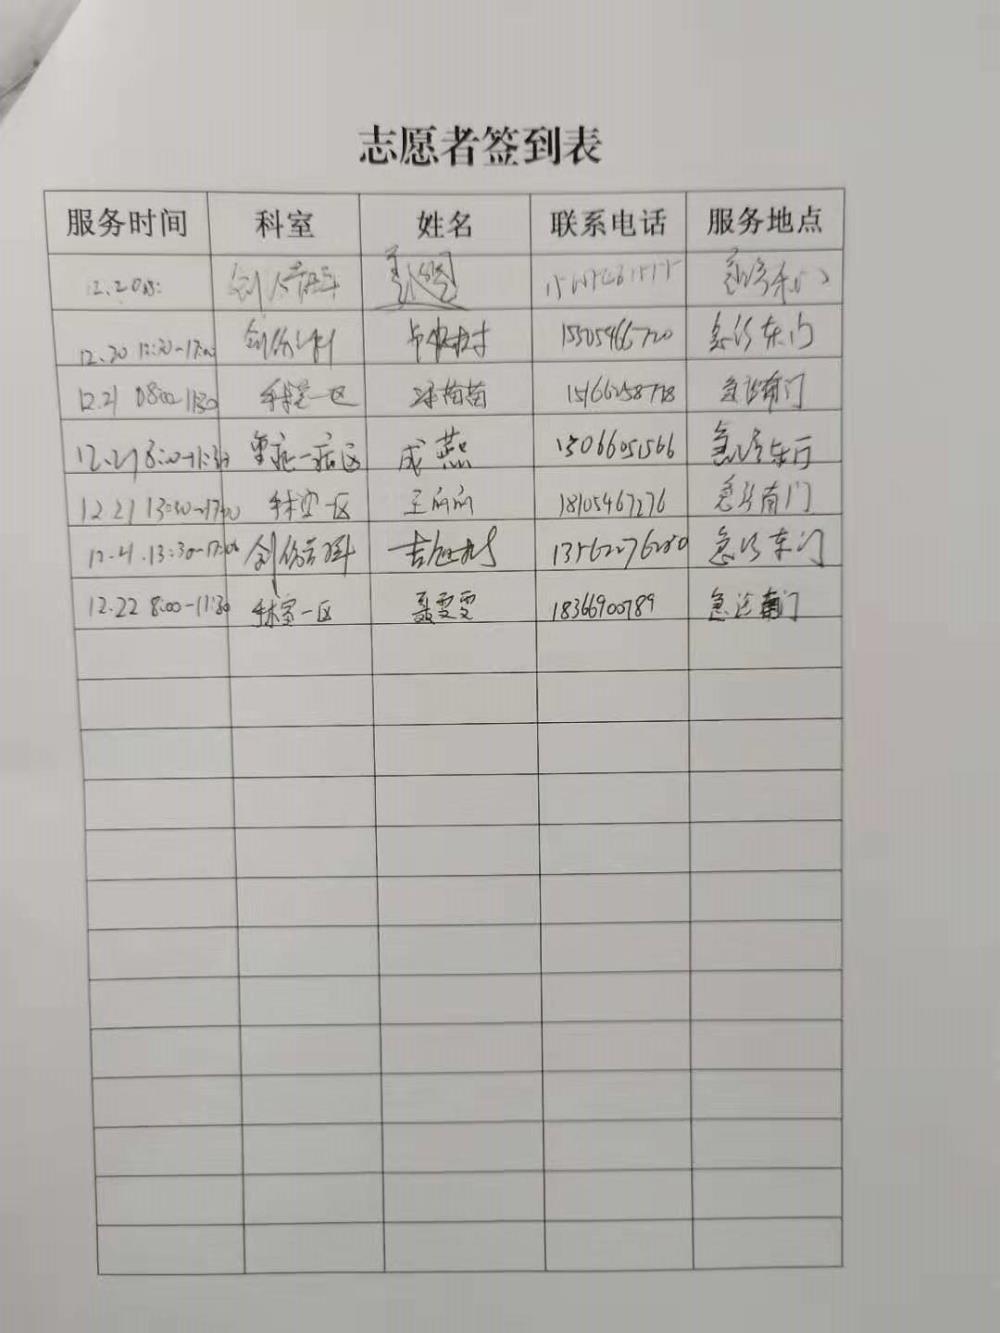 志愿者签到表
服务时间 科室 姓名 联系电话 服务地点
12.20 创伤骨科 急诊东门
12.20 13:30-17:00 创伤骨科 15505466720 急诊东门
12.21 08:00-11:30 手术室一区 苗苗 15166258778 急诊南门
12.21 8:00-11:30 重症一病区 成燕 15066051566 急诊东门
12.21 13:30-17:00 手术室一区 王 18105467276 急诊南门
12.21.13:30-17:00 创伤骨科 13562276280 急诊东门
12.22 8:00-11:30 手术室一区 聂雯雯 18366900789 急诊南门